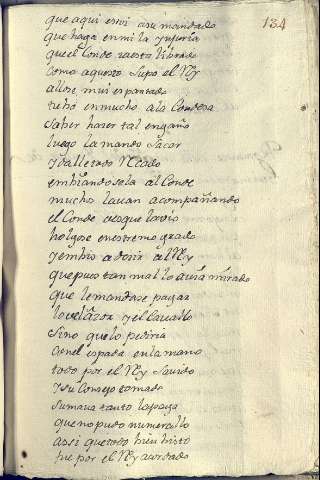 134
que aqui esoi a su mandado
que haga en mi la ynjuria
que el Conde ya esta librado
como aquesto supo el Rey
allose mui espantado
tubo en mucho a la Condesa
saber hazer tal engaño
luego la mando sacar
y dalle todo recado
embiandosela al Conde
muchos la uan acompañando
el Conde desque la vio
holgose en estremo grado
y embio a dezir al Rey
que pues tan mal lo auia mirado
que le mandase pagar
lo del azor y el cauallo
sino que lo pediria
con el espada en la mano
todo por el Rey sauido
y su Consejo tomado
sumaua tanto la paga
que no pudo numerallo
assi que todo bien visto
fue por el Rey acordado